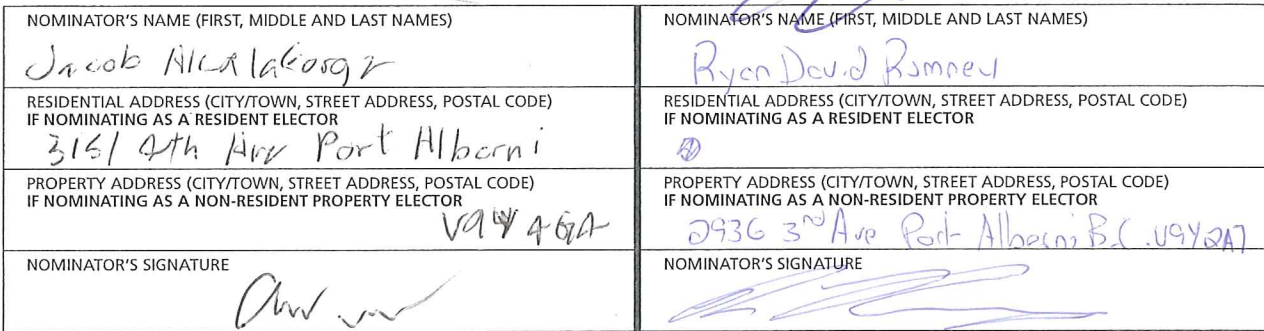 NOMINATOR'S NAME (FIRST, MIDDLE AND LAST NAMES)
Jacob
RESIDENTIAL ADDRESS (CITY/TOWN, STREET ADDRESS, POSTAL CODE)
IF NOMINATING AS A RESIDENT ELECTOR
3151 4th Ave Port Alberni
PROPERTY ADDRESS (CITY/TOWN, STREET ADDRESS, POSTAL CODE)
IF NOMINATING AS A NON-RESIDENT PROPERTY ELECTOR
V9Y
NOMINATOR'S SIGNATURE
NOMINATOR'S NAME (FIRST, MIDDLE AND LAST NAMES)
Ryan David
RESIDENTIAL ADDRESS (CITY/TOWN, STREET ADDRESS, POSTAL CODE)
IF NOMINATING AS A RESIDENT ELECTOR
PROPERTY ADDRESS (CITY/TOWN, STREET ADDRESS, POSTAL CODE)
IF NOMINATING AS A NON-RESIDENT PROPERTY ELECTOR
2936 3rd Ave Port Alberni B.C. V9Y2A7
NOMINATOR'S SIGNATURE